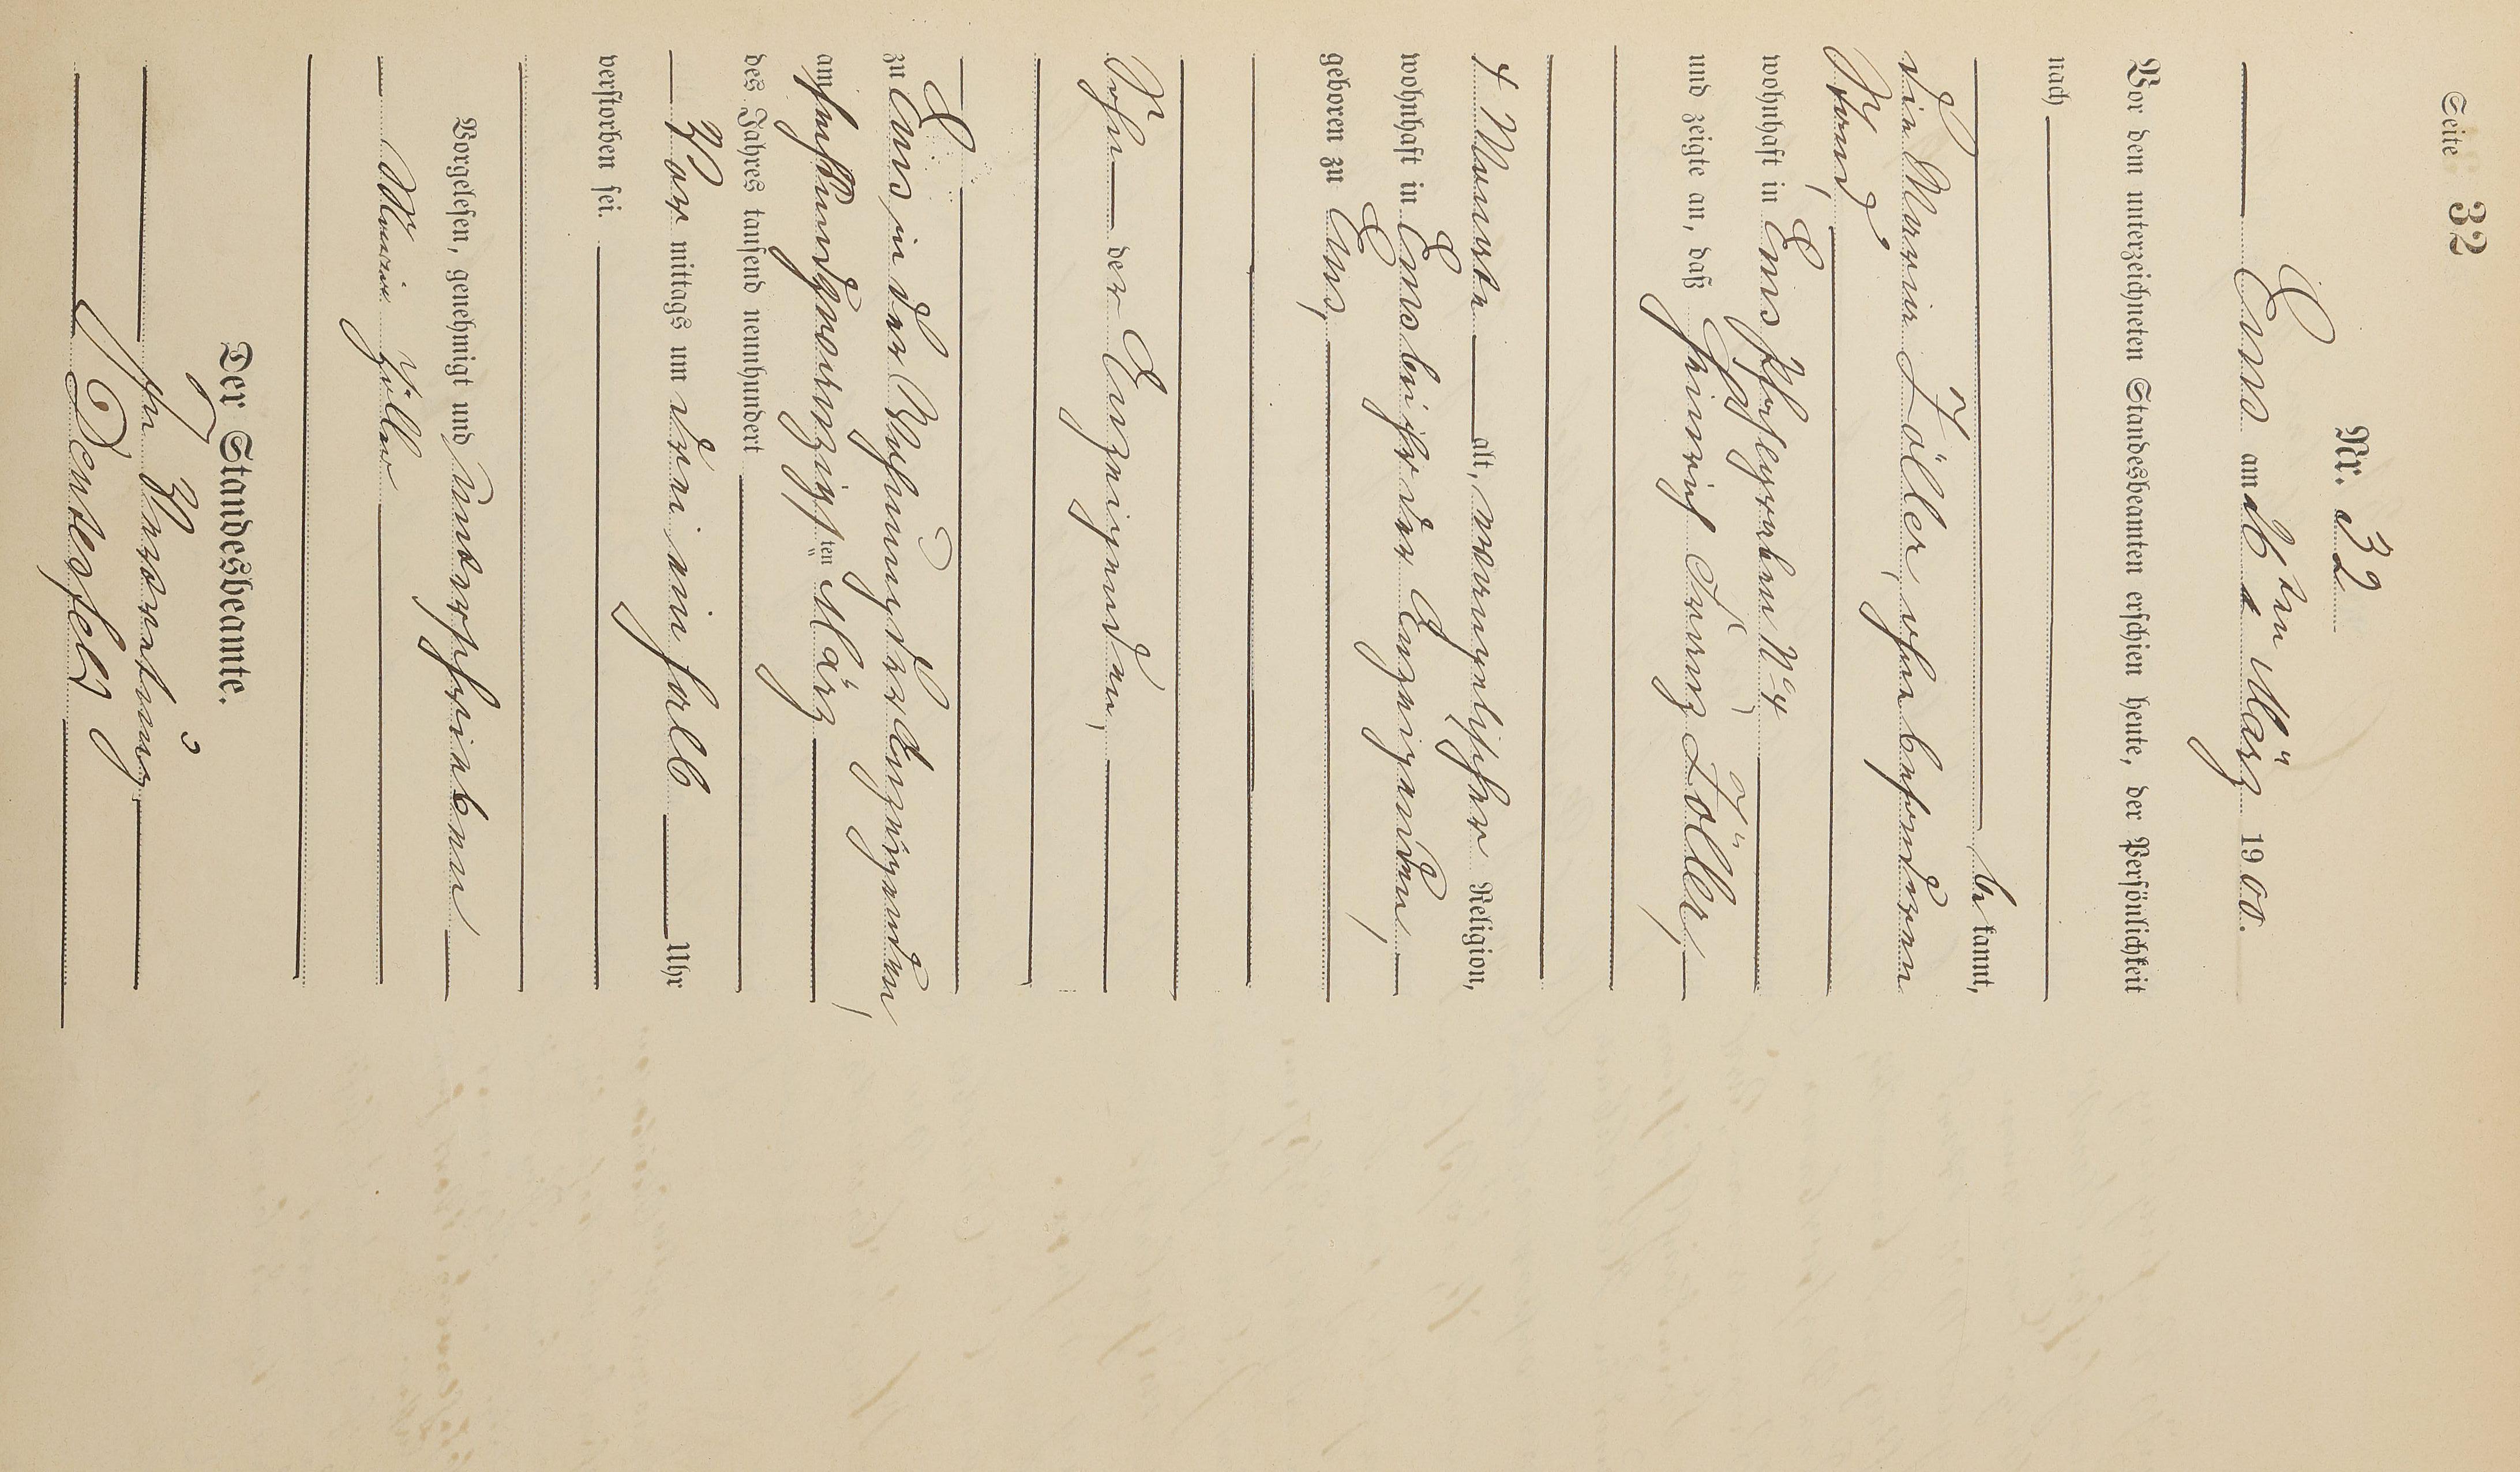 Seite 32
Nr. 32
Ems am 26ten März 1900.
Vor dem unterzeichneten Standesbeamten erschien heute, der Persönlichkeit
nach
bekannt,
die Maria Zöller, ohne besonderen
Stand,
wohnhaft in Ems Pfahlgraben No 4
und zeigte an, daß Heinrich Franz Zöller,
4 Monate alt, evangelischer Religion,
wohnhaft in Ems bei ihr der Anzeigenden,
geboren zu Ems,
Sohn der Anzeigenden,
zu Ems, in der Wohnung der Anzeigenden,
am fünfundzwanzigsten März
des Jahres tausend neunhundert
Vor mittags um drei ein halb Uhr
verstorben sei.
Vorgelesen, genehmigt und unterschrieben
Maria Zöller
Der Standesbeamte.
In Vertretung